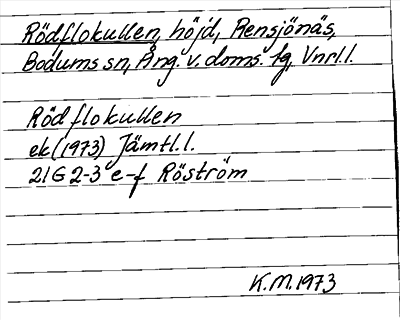 Rödflokullen, höjd, Rensjönäs,
Bodums sn, Ång. v. doms. fg, Vnrl.l.
Rödflokullen
ek (1973) Jämtl.l.
21G 2-3 e-f Röström
K.M. 1973